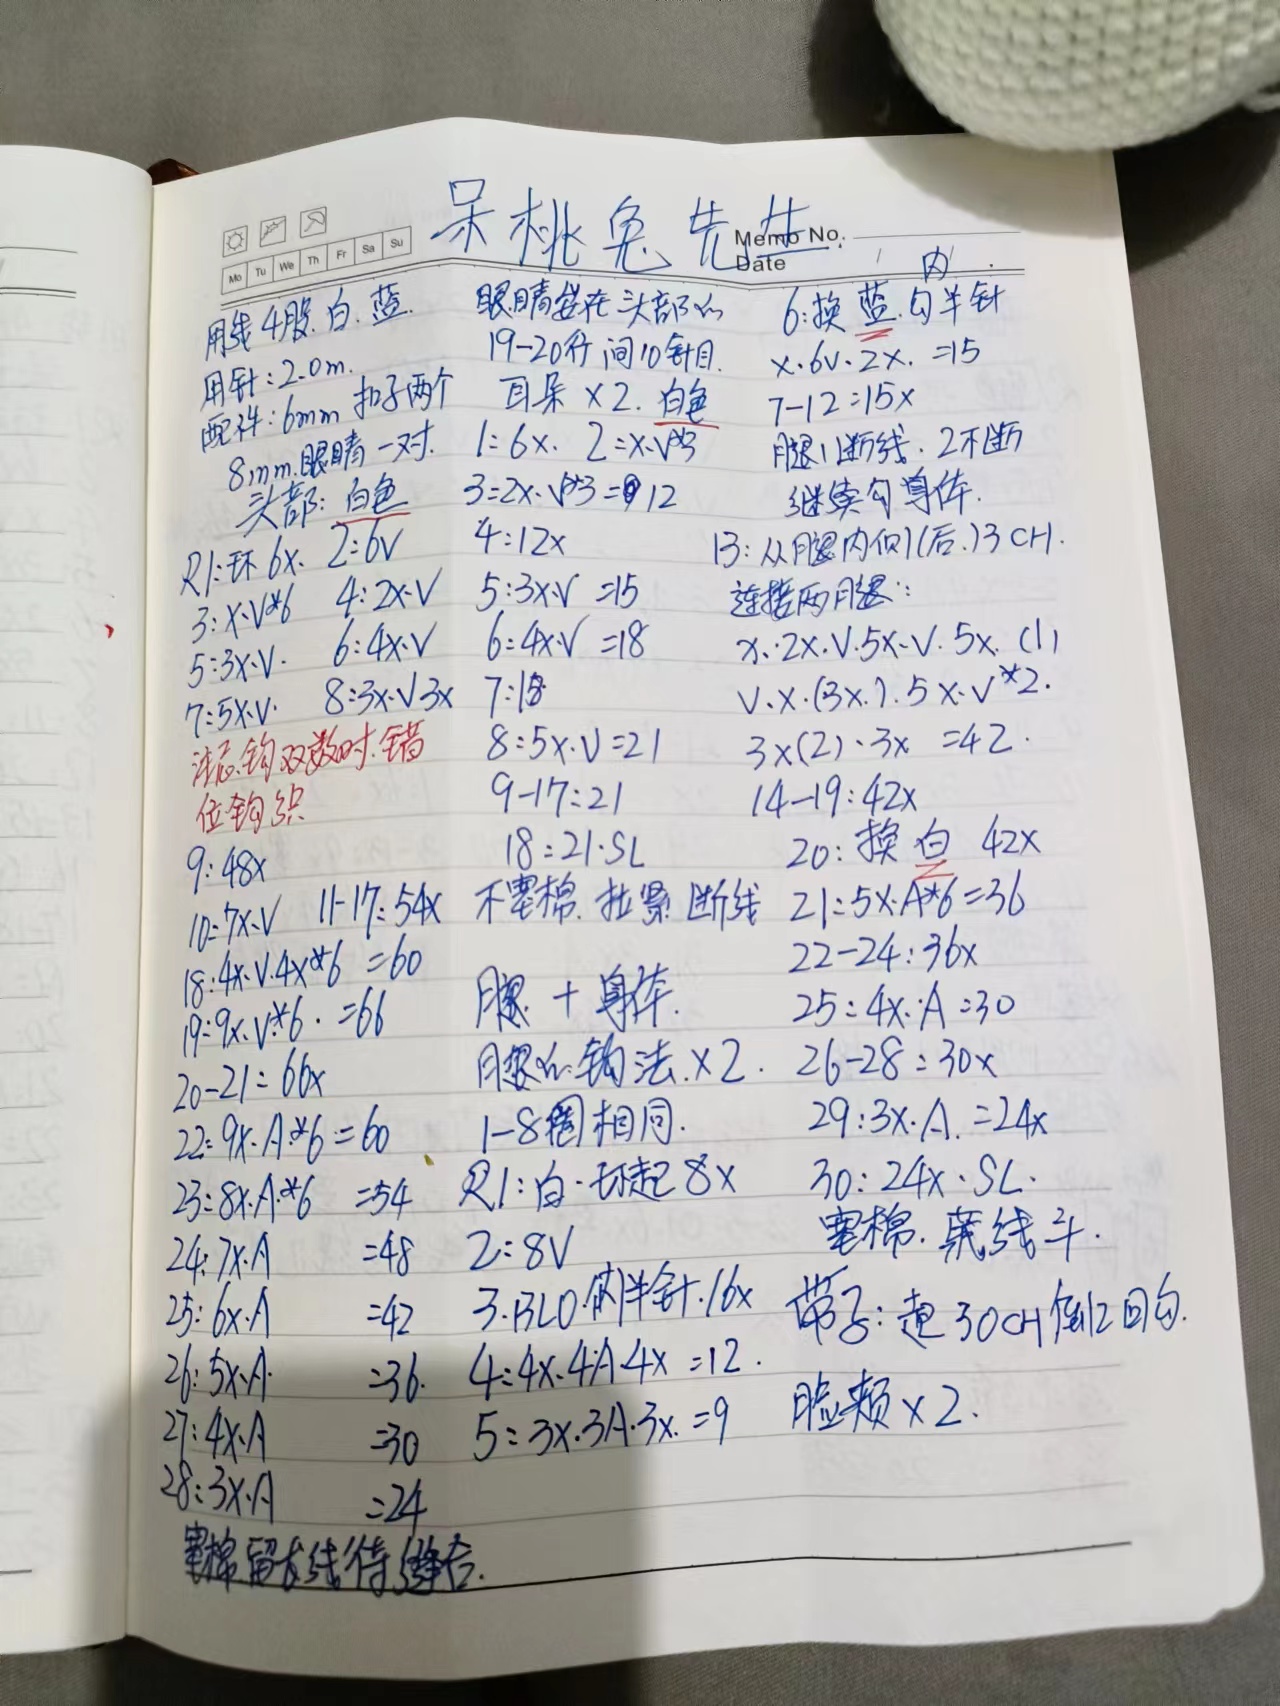 呆桃兔先生
Memo No.
Date
Mo Tu We Th Fr Sa Su
用线4股.白.蓝.
用针:2.0m.
配件:6mm 扣子两个
8mm.眼睛一对.
头部:白色
R1:环6x. 2:6V
3:x.V*6 4:2x.V
5:3x.V. 6:4x.V
7:5x.V. 8:3x.V3x
注意.钩双数时.错
位钩织
9:48x
10:7x.V 11-17:54x
18:4x.V.4x*6 =60
19:9x.V.*6. =66
20-21:66x
22:9x.A.*6=60
23:8x.A.*6 =54
24:7x.A =48
25:6x.A =42
26:5x.A. =36.
27:4x.A =30
28:3x.A =24
塞棉留长线待缝合.
眼睛装在头部的
19-20行间10针目.
耳朵×2.白色
1:6x. 2:x.V*3
3:2x.V*3=12
4:12x
5:3x.V =15
6:4x.V =18
7:18
8:5x.V=21
9-17:21
18:21.SL
不塞棉.拉紧断线
腿+身体.
腿的.钩法.×2.
1-8圈相同.
R1:白.环起8x
2:8V
3.BLO.内半针.16x
4:4x.4A.4x =12.
5:3x.3A.3x. =9
内
6:换蓝.勾半针
x.6V.2x. =15
7-12:15x
腿1断线.2不断
继续勾身体.
13:从腿内侧(后.)3CH.
连接两腿:
x..2x.V.5x.V.5x.(1)
V.x.(3x.).5x.V*2.
3x(2).3x =42.
14-19:42x
20:换白 42x
21:5x.A*6=36
22-24:36x
25:4x.A=30
26-28:30x
29:3x.A.=24x
30:24x.SL.
塞棉.藏线头.
带子:起30CH 倒2回勾.
脸颊×2.